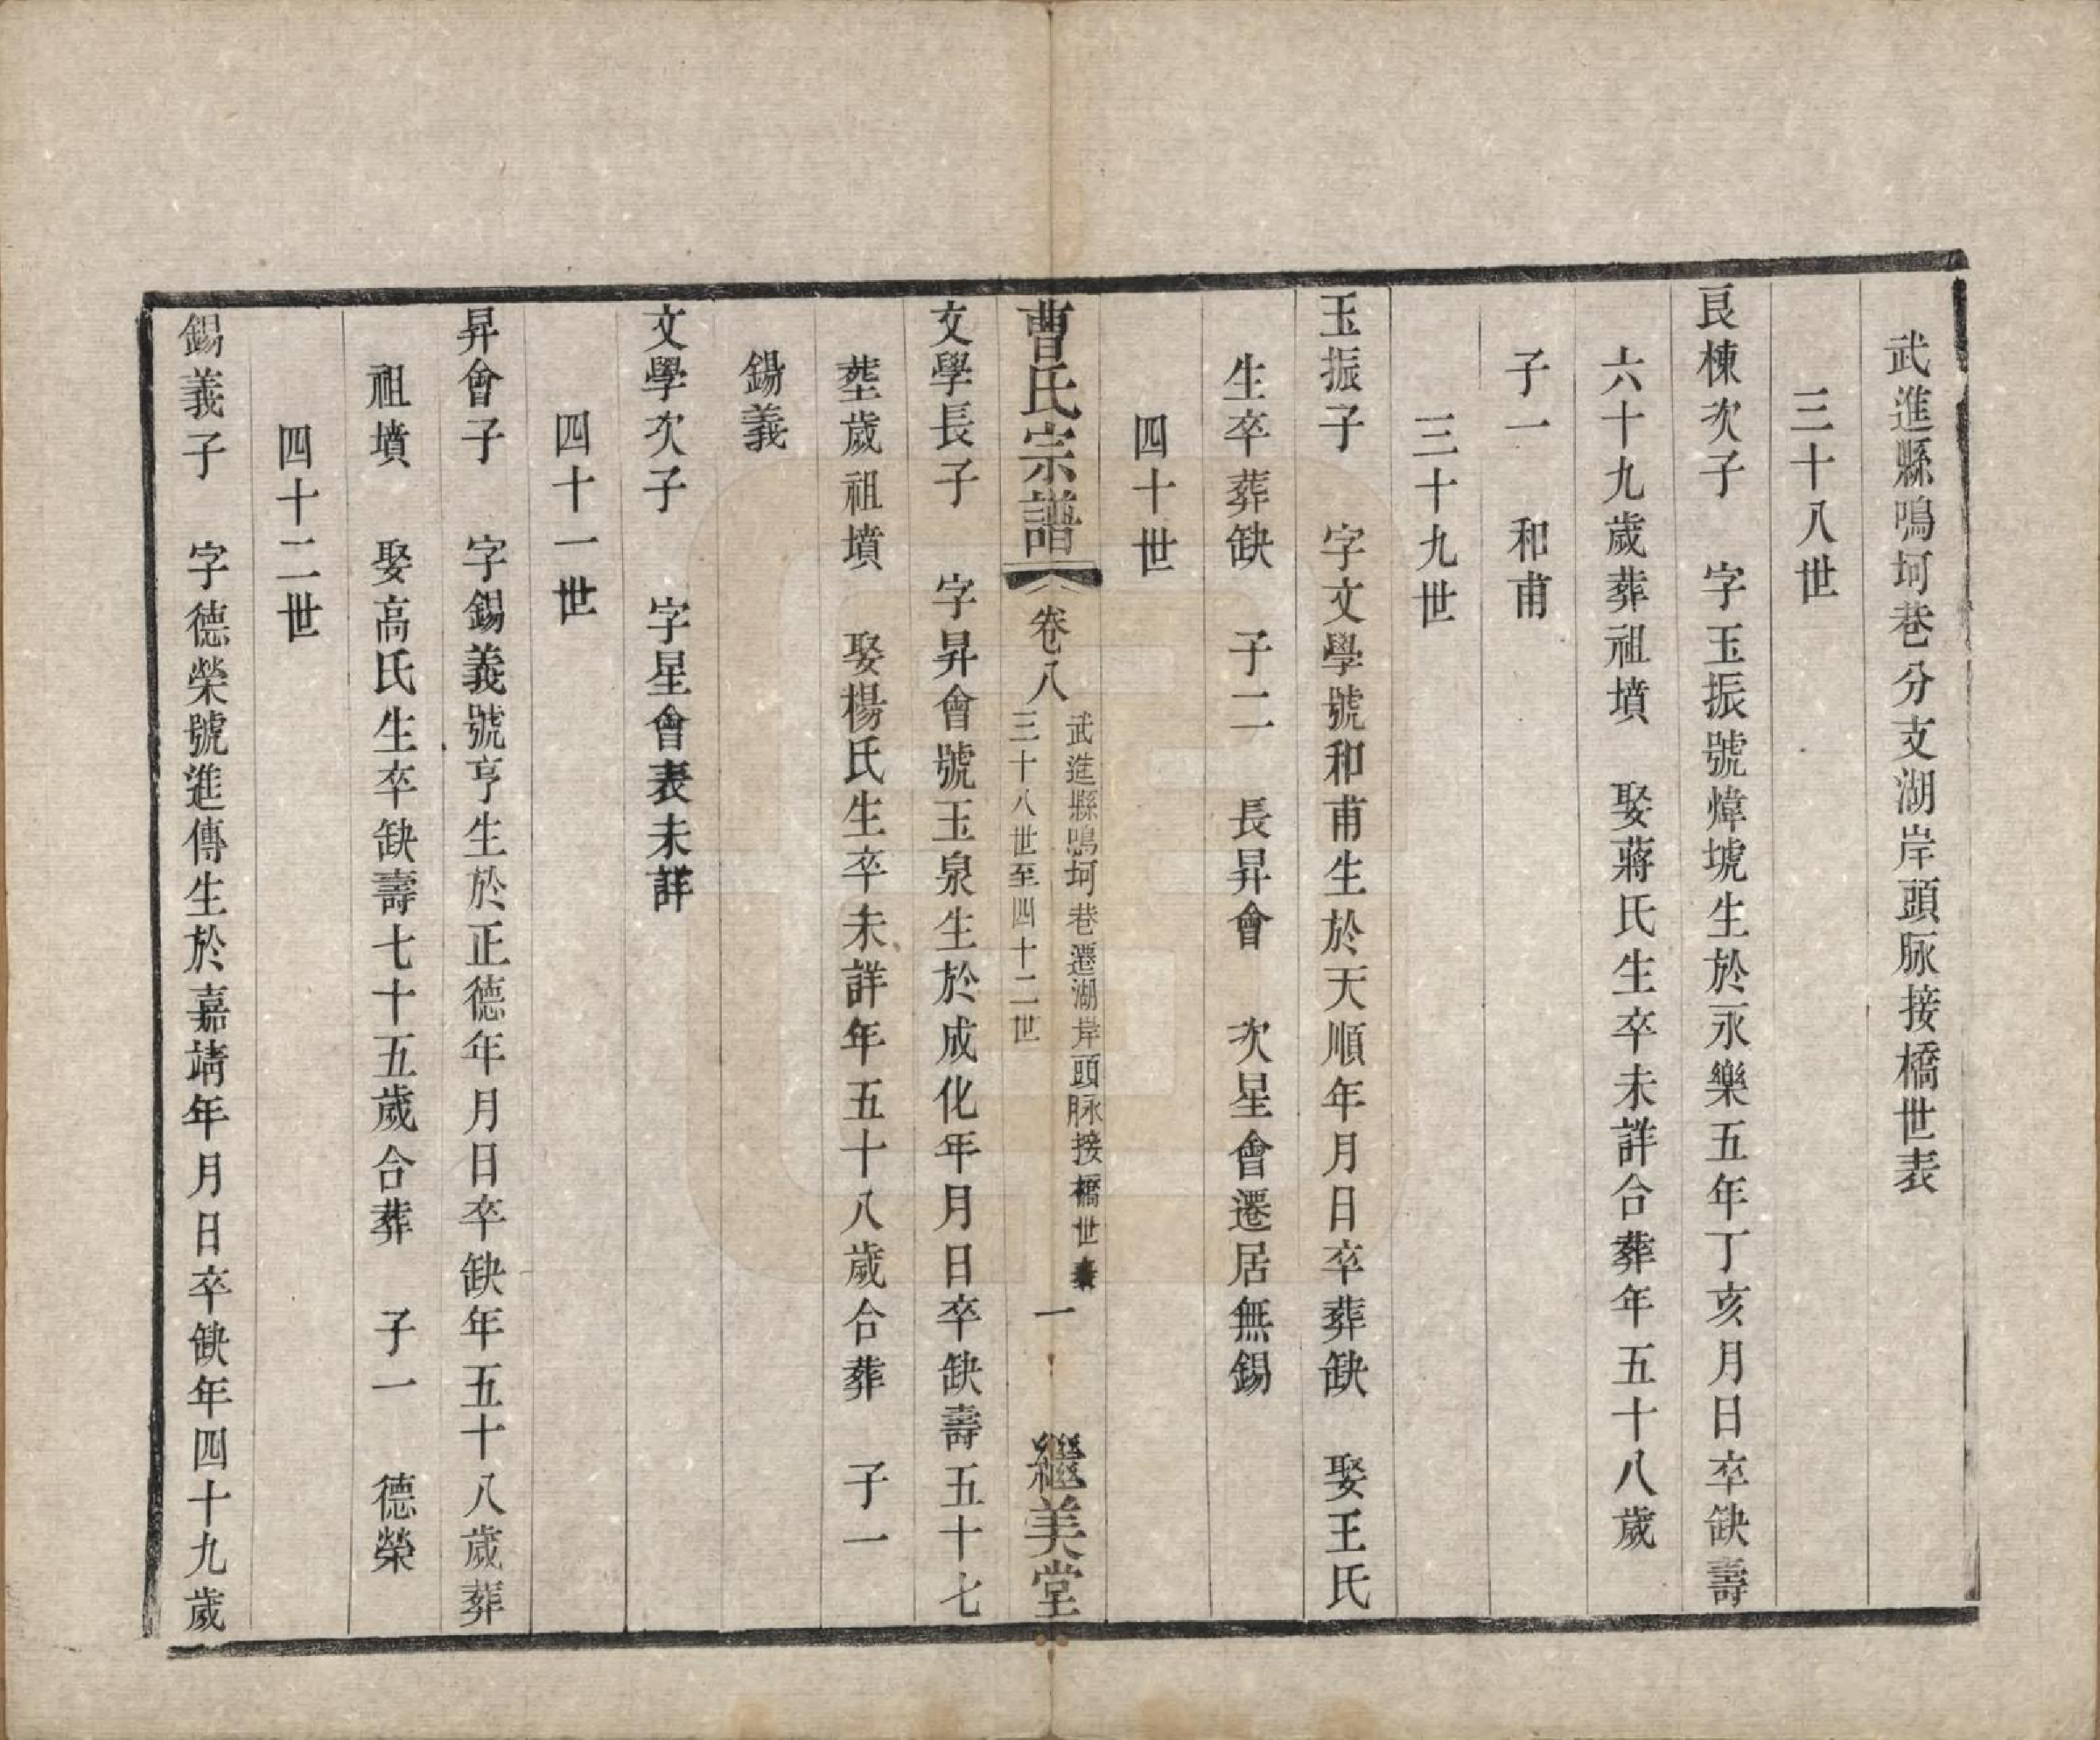 武進縣鳴坷巷分支湖岸頭脉接橋世表
三十八世
良棟次子　字玉振號煒墟生於永樂五年丁亥月日卒缺壽
六十九歲葬祖墳　娶蔣氏生卒未詳合葬年五十八歲
子一　和甫
三十九世
玉振子　字文學號和甫生於天順年月日卒葬缺　娶王氏
生卒葬缺　子二　長昇會　次星會遷居無錫
四十世
曹氏宗譜
卷八
武進縣鳴坷巷遷湖岸頭脉接橋世表
三十八世至四十二世
一
繼美堂
文學長子　字昇會號玉泉生於成化年月日卒缺壽五十七
歲祖墳　娶楊氏生卒未詳年五十八歲合葬　子一
錫義
文學次子　字星會表未詳
四十一世
昇會子　字錫義號亨生於正德年月日卒缺年五十八歲葬
祖墳　娶高氏生卒缺壽七十五歲合葬　子一　德榮
四十二世
錫義子　字德榮號進傳生於嘉靖年月日卒缺年四十九歲